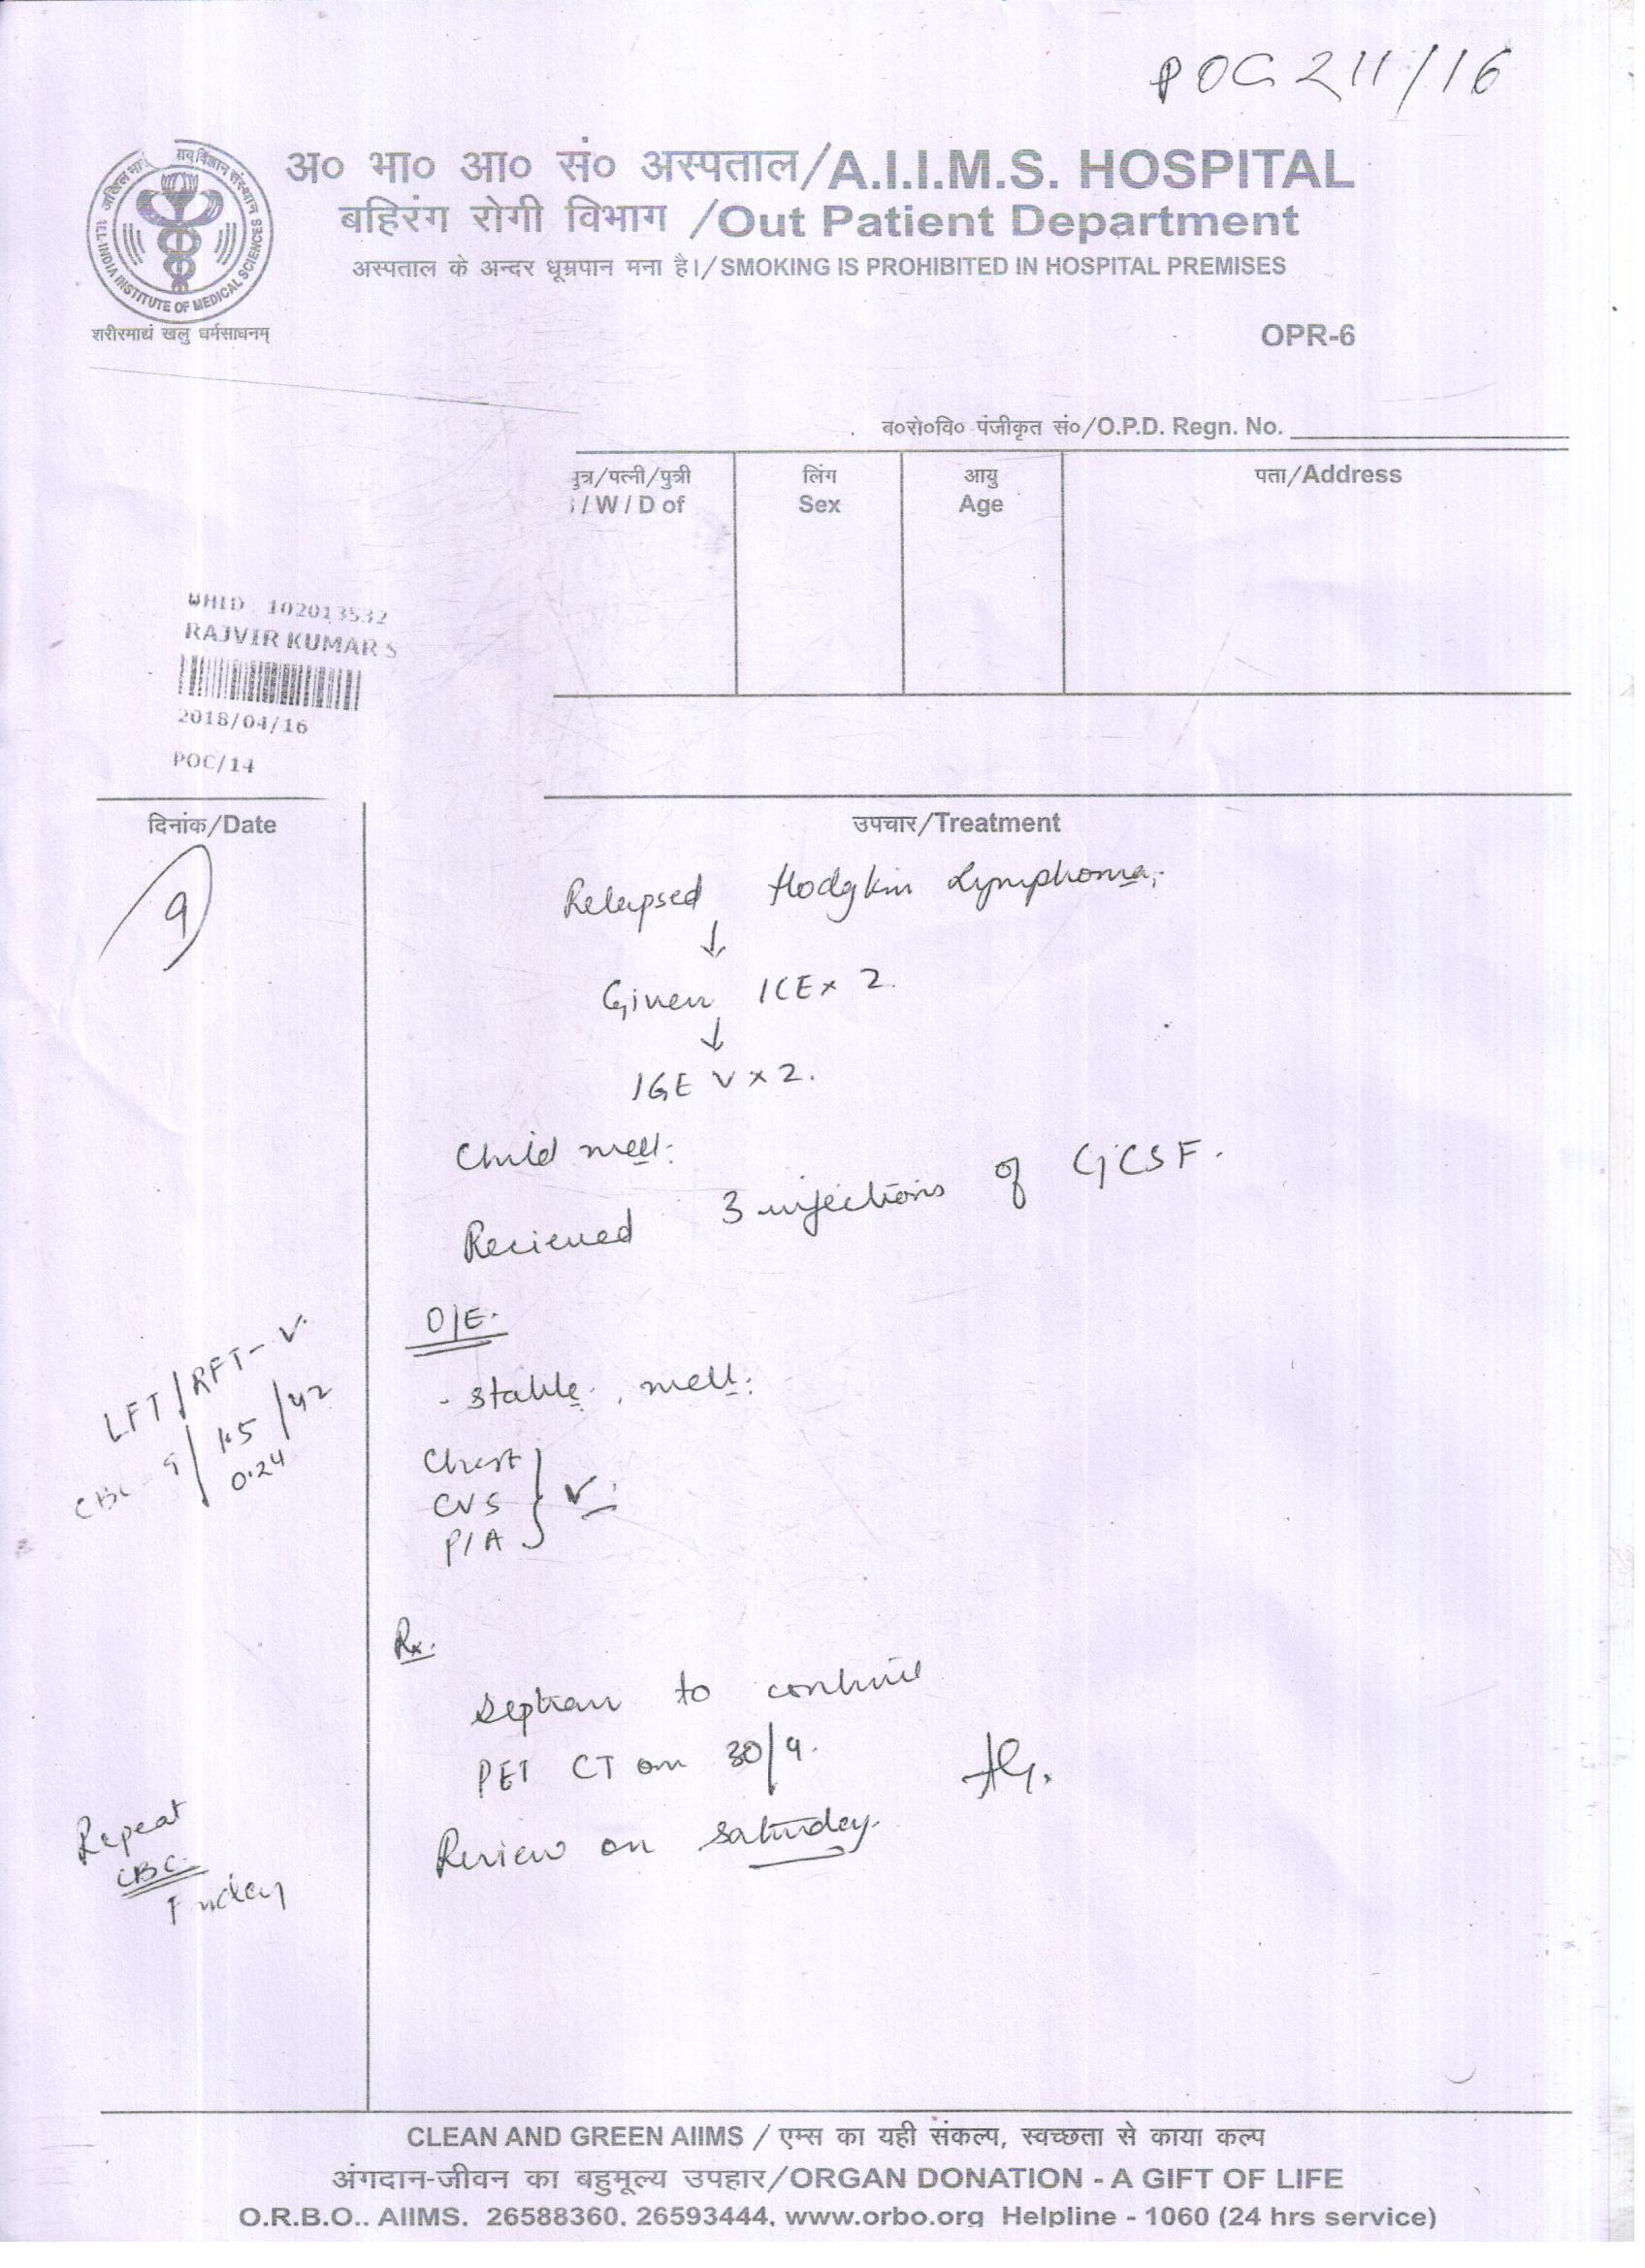 POC 211/16
अ० भा० आ० सं० अस्पताल/A.I.I.M.S. HOSPITAL
बहिरंग रोगी विभाग /Out Patient Department
अस्पताल के अन्दर धूम्रपान मना है।/SMOKING IS PROHIBITED IN HOSPITAL PREMISES
शरीरमाद्यं खलु धर्मसाधनम्
OPR-6
ब०रो०वि० पंजीकृत सं०/O.P.D. Regn. No.
पुत्र/पत्नी/पुत्री लिंग आयु पता/Address
/ W / D of Sex Age
WHID 102013532
RAJVIR KUMAR S
2018/04/16
POC/14
दिनांक/Date उपचार/Treatment
9
Relapsed Hodgkin Lymphoma,
↓
Given ICE x 2.
↓
IGEV x 2.
Child well.
Recieved 3 injections of GCSF.
O/E.
- stable, well.
LFT/RFT- ✓.
CBC - 9/ 1.5/42
0.24
Chest
CVS } ✓.
P/A
Rx.
Septran to continue
PET CT on 30/4.
Review on Saturday.
Repeat
CBC
CLEAN AND GREEN AIIMS / एम्स का यही संकल्प, स्वच्छता से काया कल्प
अंगदान-जीवन का बहुमूल्य उपहार/ORGAN DONATION - A GIFT OF LIFE
O.R.B.O.. AIIMS. 26588360, 26593444, www.orbo.org Helpline - 1060 (24 hrs service)